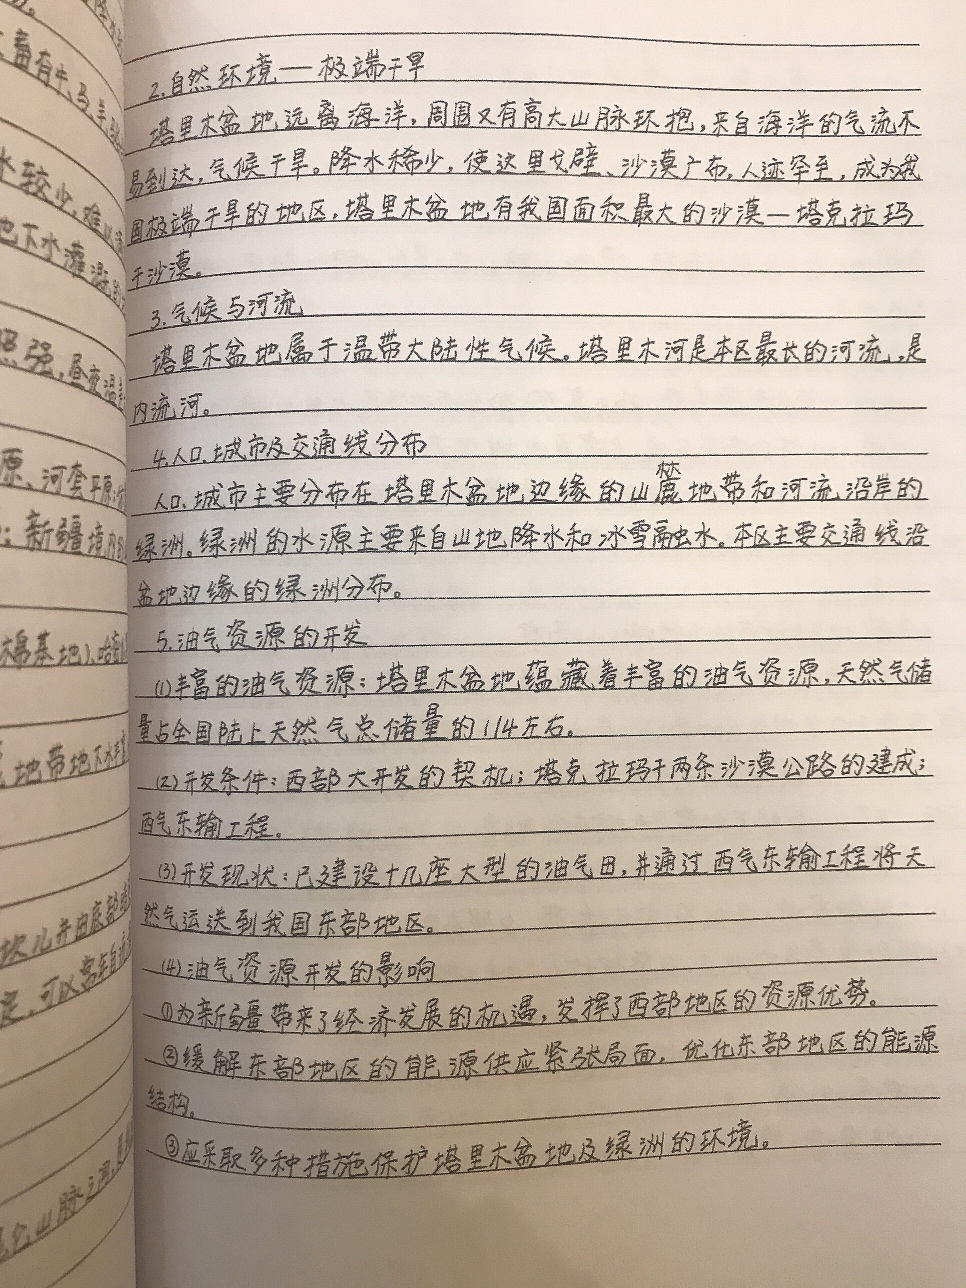 畜有牛、马、羊、
水较少,难以
地下水灌溉
照强,昼夜温差
原、河套平原;
;新疆境内
棉基地)、哈密
地带地下水丰
坎儿井由
定,可以常年自流
昆仑山脉之间,
2.自然环境——极端干旱
塔里木盆地远离海洋,周围又有高大山脉环抱,来自海洋的气流不
易到达,气候干旱。降水稀少,使这里戈壁、沙漠广布,人迹罕至,成为我
国极端干旱的地区,塔里木盆地有我国面积最大的沙漠—塔克拉玛
干沙漠。
3.气候与河流
塔里木盆地属于温带大陆性气候。塔里木河是本区最长的河流,是
内流河。
4.人口、城市及交通线分布
人口、城市主要分布在塔里木盆地边缘的山麓地带和河流沿岸的
绿洲。绿洲的水源主要来自山地降水和冰雪融水。本区主要交通线沿
盆地边缘的绿洲分布。
5.油气资源的开发
(1)丰富的油气资源:塔里木盆地蕴藏着丰富的油气资源,天然气储
量占全国陆上天然气总储量的1/4左右。
(2)开发条件:西部大开发的契机;塔克拉玛干两条沙漠公路的建成;
西气东输工程。
(3)开发现状:已建设十几座大型的油气田,并通过西气东输工程将天
然气运送到我国东部地区。
(4)油气资源开发的影响
①为新疆带来了经济发展的机遇,发挥了西部地区的资源优势。
②缓解东部地区的能源供应紧张局面,优化东部地区的能源
结构。
③应采取多种措施保护塔里木盆地及绿洲的环境。